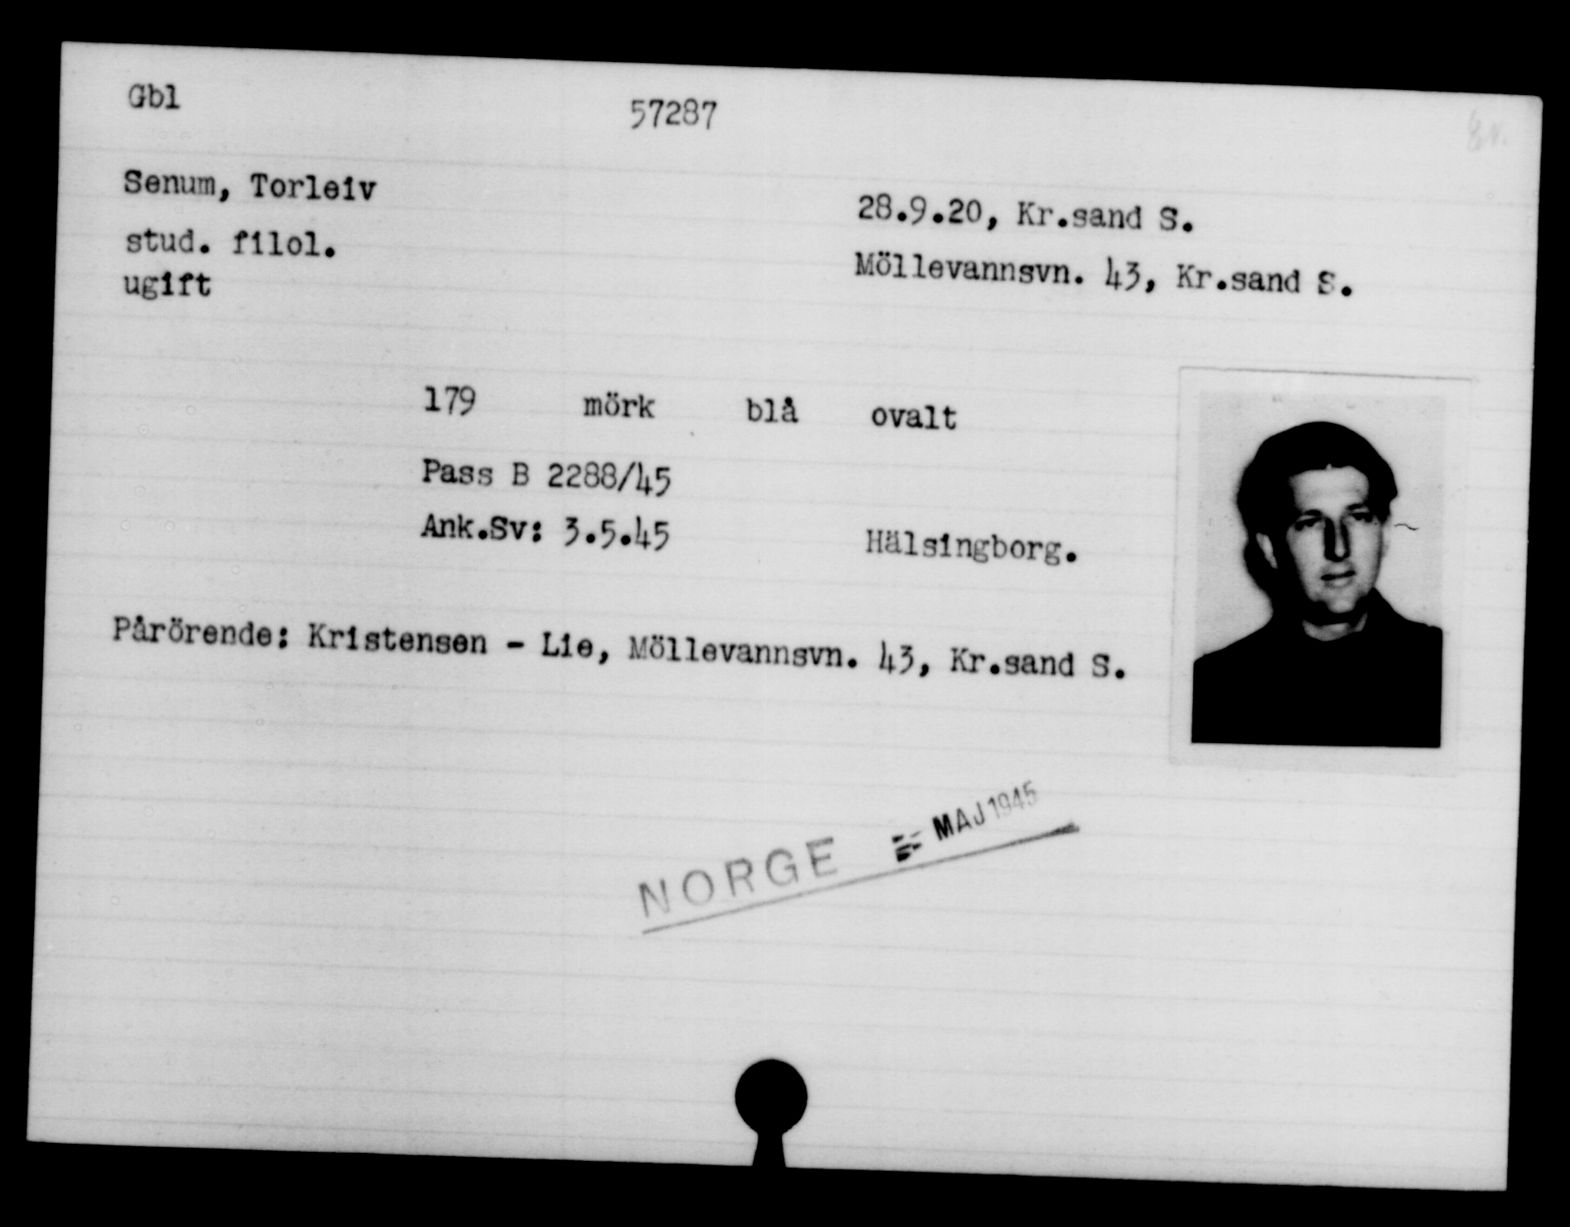 Gbl 57287
Senum, Torleiv 28.9.20, Kr.sand S.
stud. filol. Möllevannsvn. 43, Kr.sand S.
ugift
179 mörk blå ovalt
Pass B 2288/45
Ank.Sv: 3.5.45 Hälsingborg.
Pårörende: Kristensen - Lie, Möllevannsvn. 43, Kr.sand S.
NORGE MAJ 1945